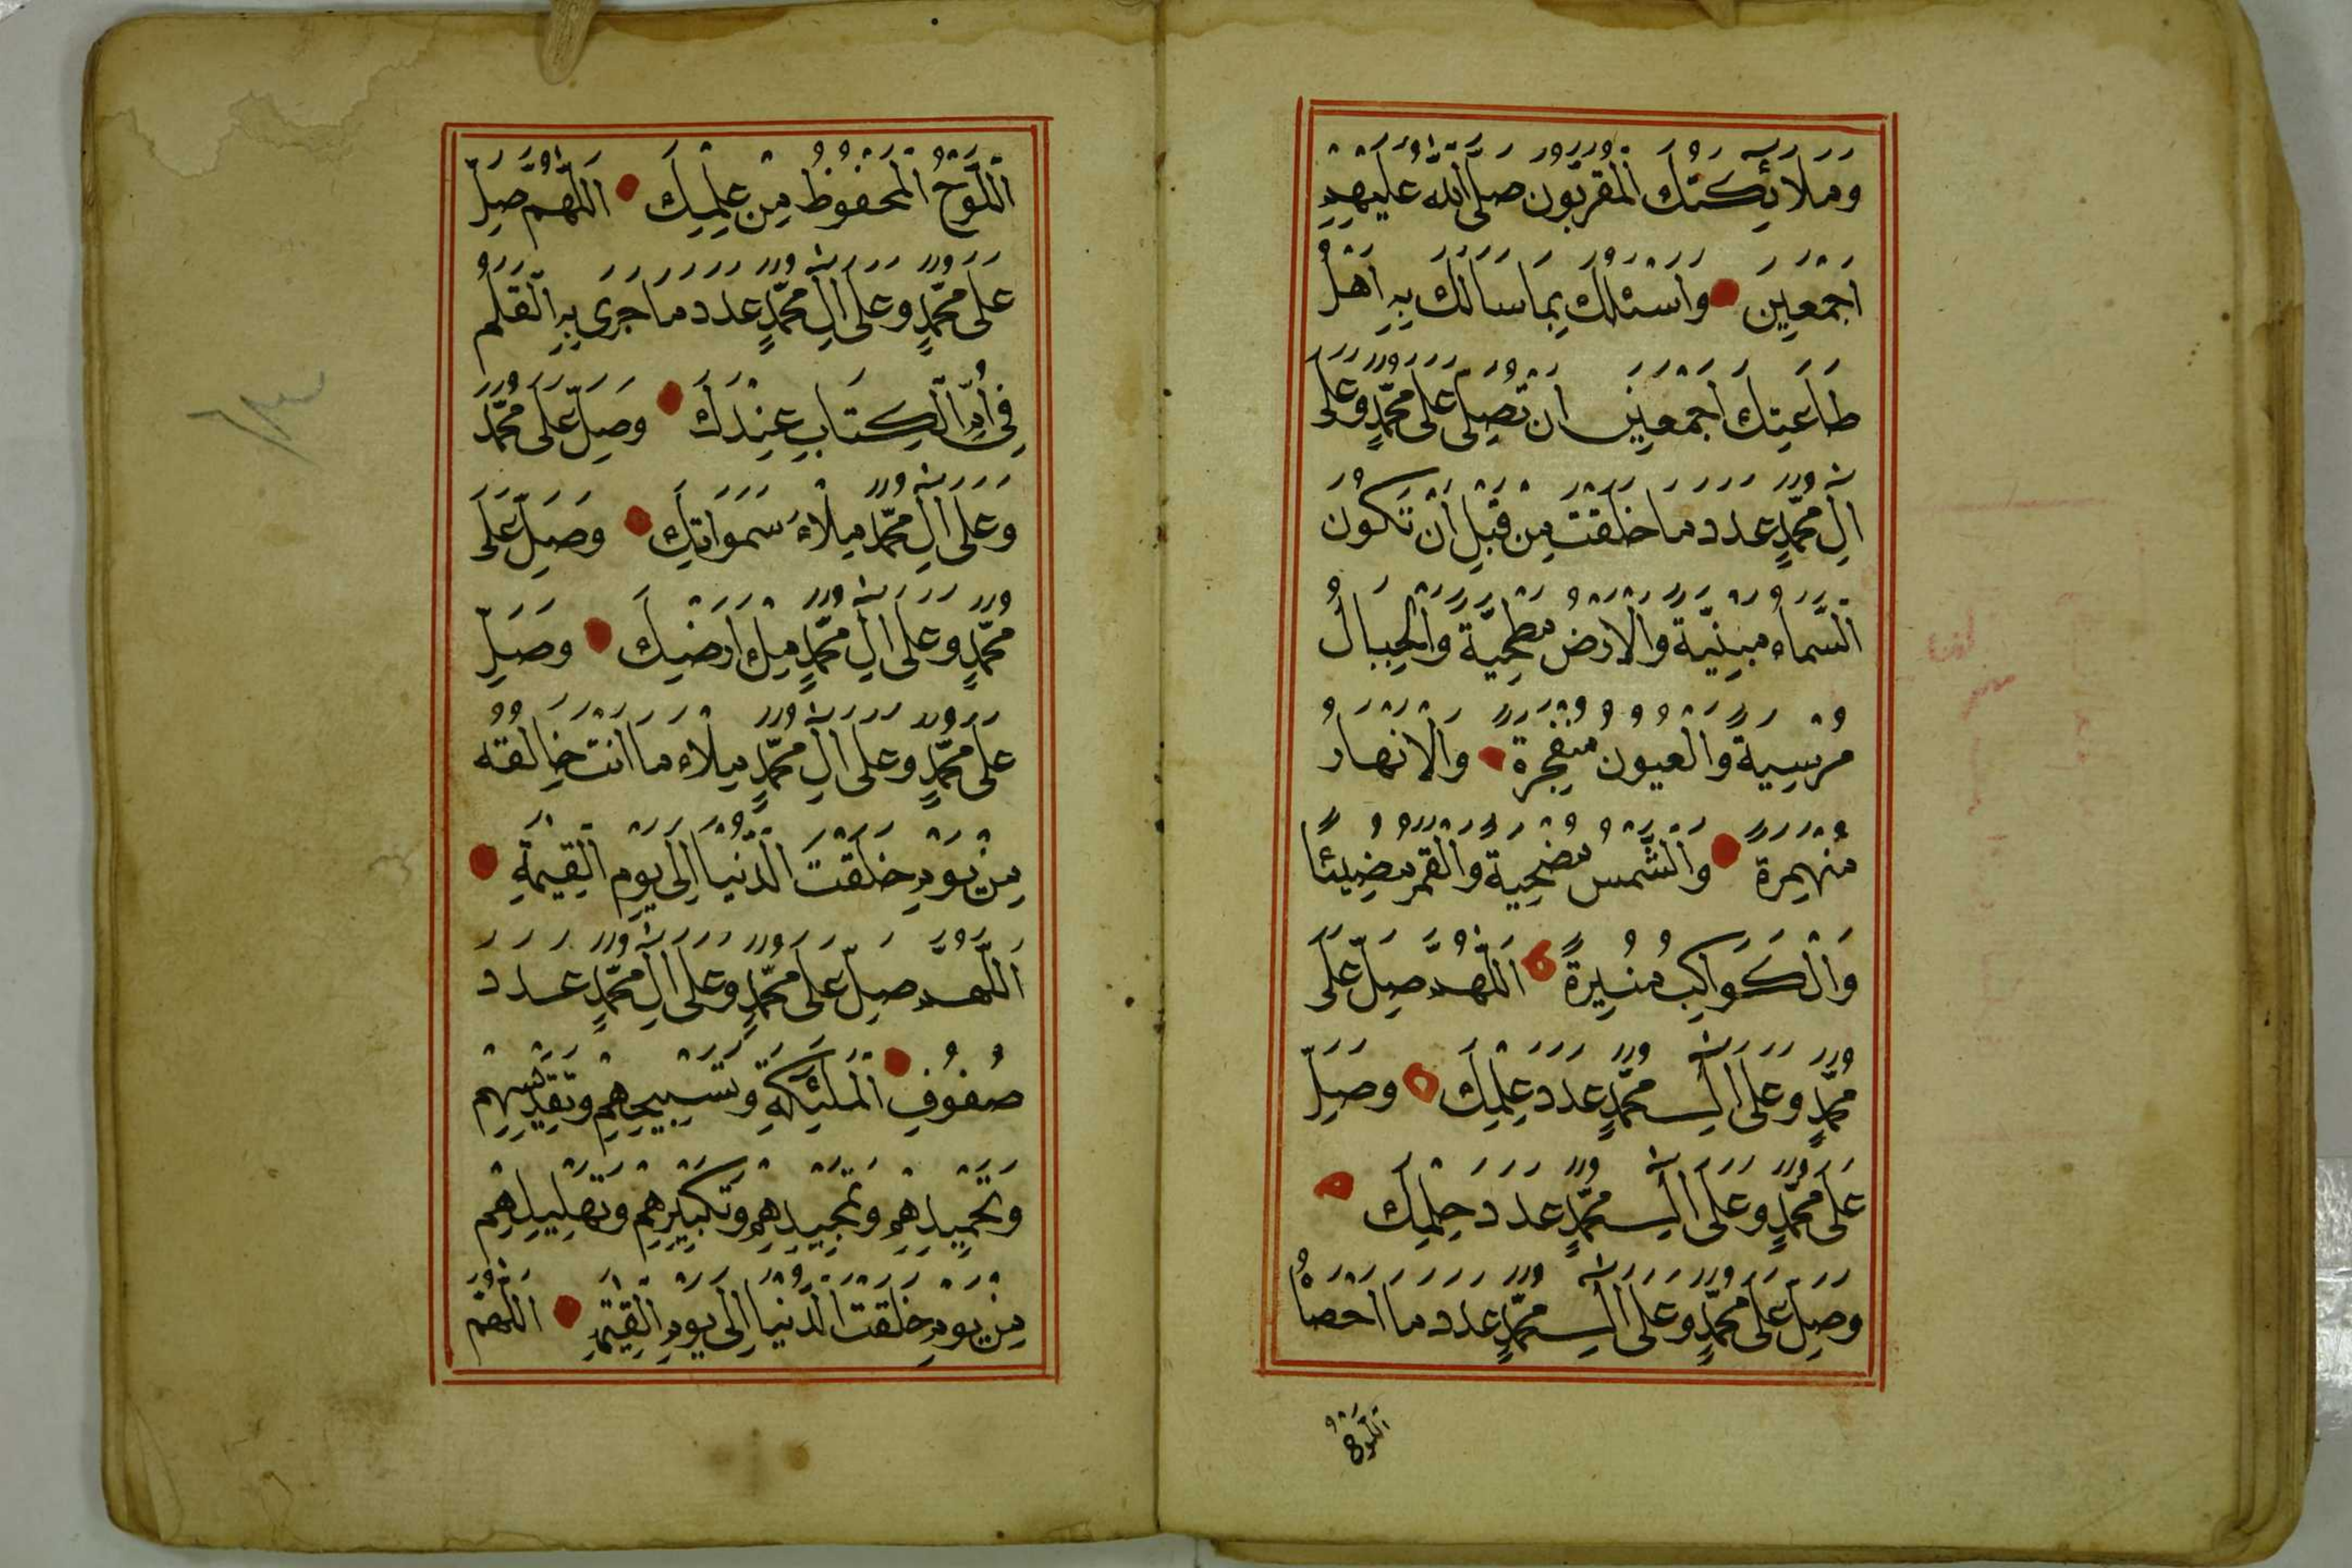 وَمَلَائِكَتُكَ الْمُقَرَّبُونَ صَلَّى اللّٰهُ عَلَيْهِمْ
اَجْمَعِينَ وَاَسْئَلُكَ بِمَا سَاَلَكَ بِهِ اَهْلُ
طَاعَتِكَ اَجْمَعِينَ اَنْ تُصَلِّىَ عَلَى مُحَمَّدٍ وَعَلَى
اٰلِ مُحَمَّدٍ عَدَدَ مَا خَلَقْتَ مِنْ قَبْلِ اَنْ تَكُونَ
السَّمَاءُ مَبْنِيَّةً وَالْاَرْضُ مَطْحِيَّةً وَالْجِبَالُ
مُرْسِيَةً وَالْعُيُونُ مُنْفَجِرَةً وَالْاَنْهَارُ
مُنْهَمِرَةً وَالشَّمْسُ مُضْحِيَةً وَالْقَمَرُ مُضِيئًا
وَالْكَوَاكِبُ مُنِيرَةً اَللّٰهُمَّ صَلِّ عَلَى
مُحَمَّدٍ وَعَلَى اٰلِ مُحَمَّدٍ عَدَدَ عِلْمِكَ وَصَلِّ
عَلَى مُحَمَّدٍ وَعَلَى اٰلِ مُحَمَّدٍ عَدَدَ حِلْمِكَ
وَصَلِّ عَلَى مُحَمَّدٍ وَعَلَى اٰلِ مُحَمَّدٍ عَدَدَ مَا اَحْصَاهُ
اللَّوْحُ
اللَّوْحُ الْمَحْفُوظُ مِنْ عِلْمِكَ اَللّٰهُمَّ صَلِّ
عَلَى مُحَمَّدٍ وَعَلَى اٰلِ مُحَمَّدٍ عَدَدَ مَا جَرَى بِهِ الْقَلَمُ
فِى اُمِّ الْكِتَابِ عِنْدَكَ وَصَلِّ عَلَى مُحَمَّدٍ
وَعَلَى اٰلِ مُحَمَّدٍ مِلْاَءَ سَمَوَاتِكَ وَصَلِّ عَلَى
مُحَمَّدٍ وَعَلَى اٰلِ مُحَمَّدٍ مِلْءَ اَرْضِكَ وَصَلِّ
عَلَى مُحَمَّدٍ وَعَلَى اٰلِ مُحَمَّدٍ مِلْاَءَ مَا اَنْتَ خَالِقُهُ
مِنْ يَوْمِ خَلَقْتَ الدُّنْيَا اِلَى يَوْمِ الْقِيٰمَةِ
اَللّٰهُمَّ صَلِّ عَلَى مُحَمَّدٍ وَعَلَى اٰلِ مُحَمَّدٍ عَدَدَ
صُفُوفِ الْمَلٰئِكَةِ وَتَسْبِيحِهِمْ وَتَقْدِيسِهِمْ
وَتَحْمِيدِهِمْ وَتَمْجِيدِهِمْ وَتَكْبِيرِهِمْ وَتَهْلِيلِهِمْ
مِنْ يَوْمِ خَلَقْتَ الدُّنْيَا اِلَى يَوْمِ الْقِيٰمَةِ اَللّٰهُمَّ